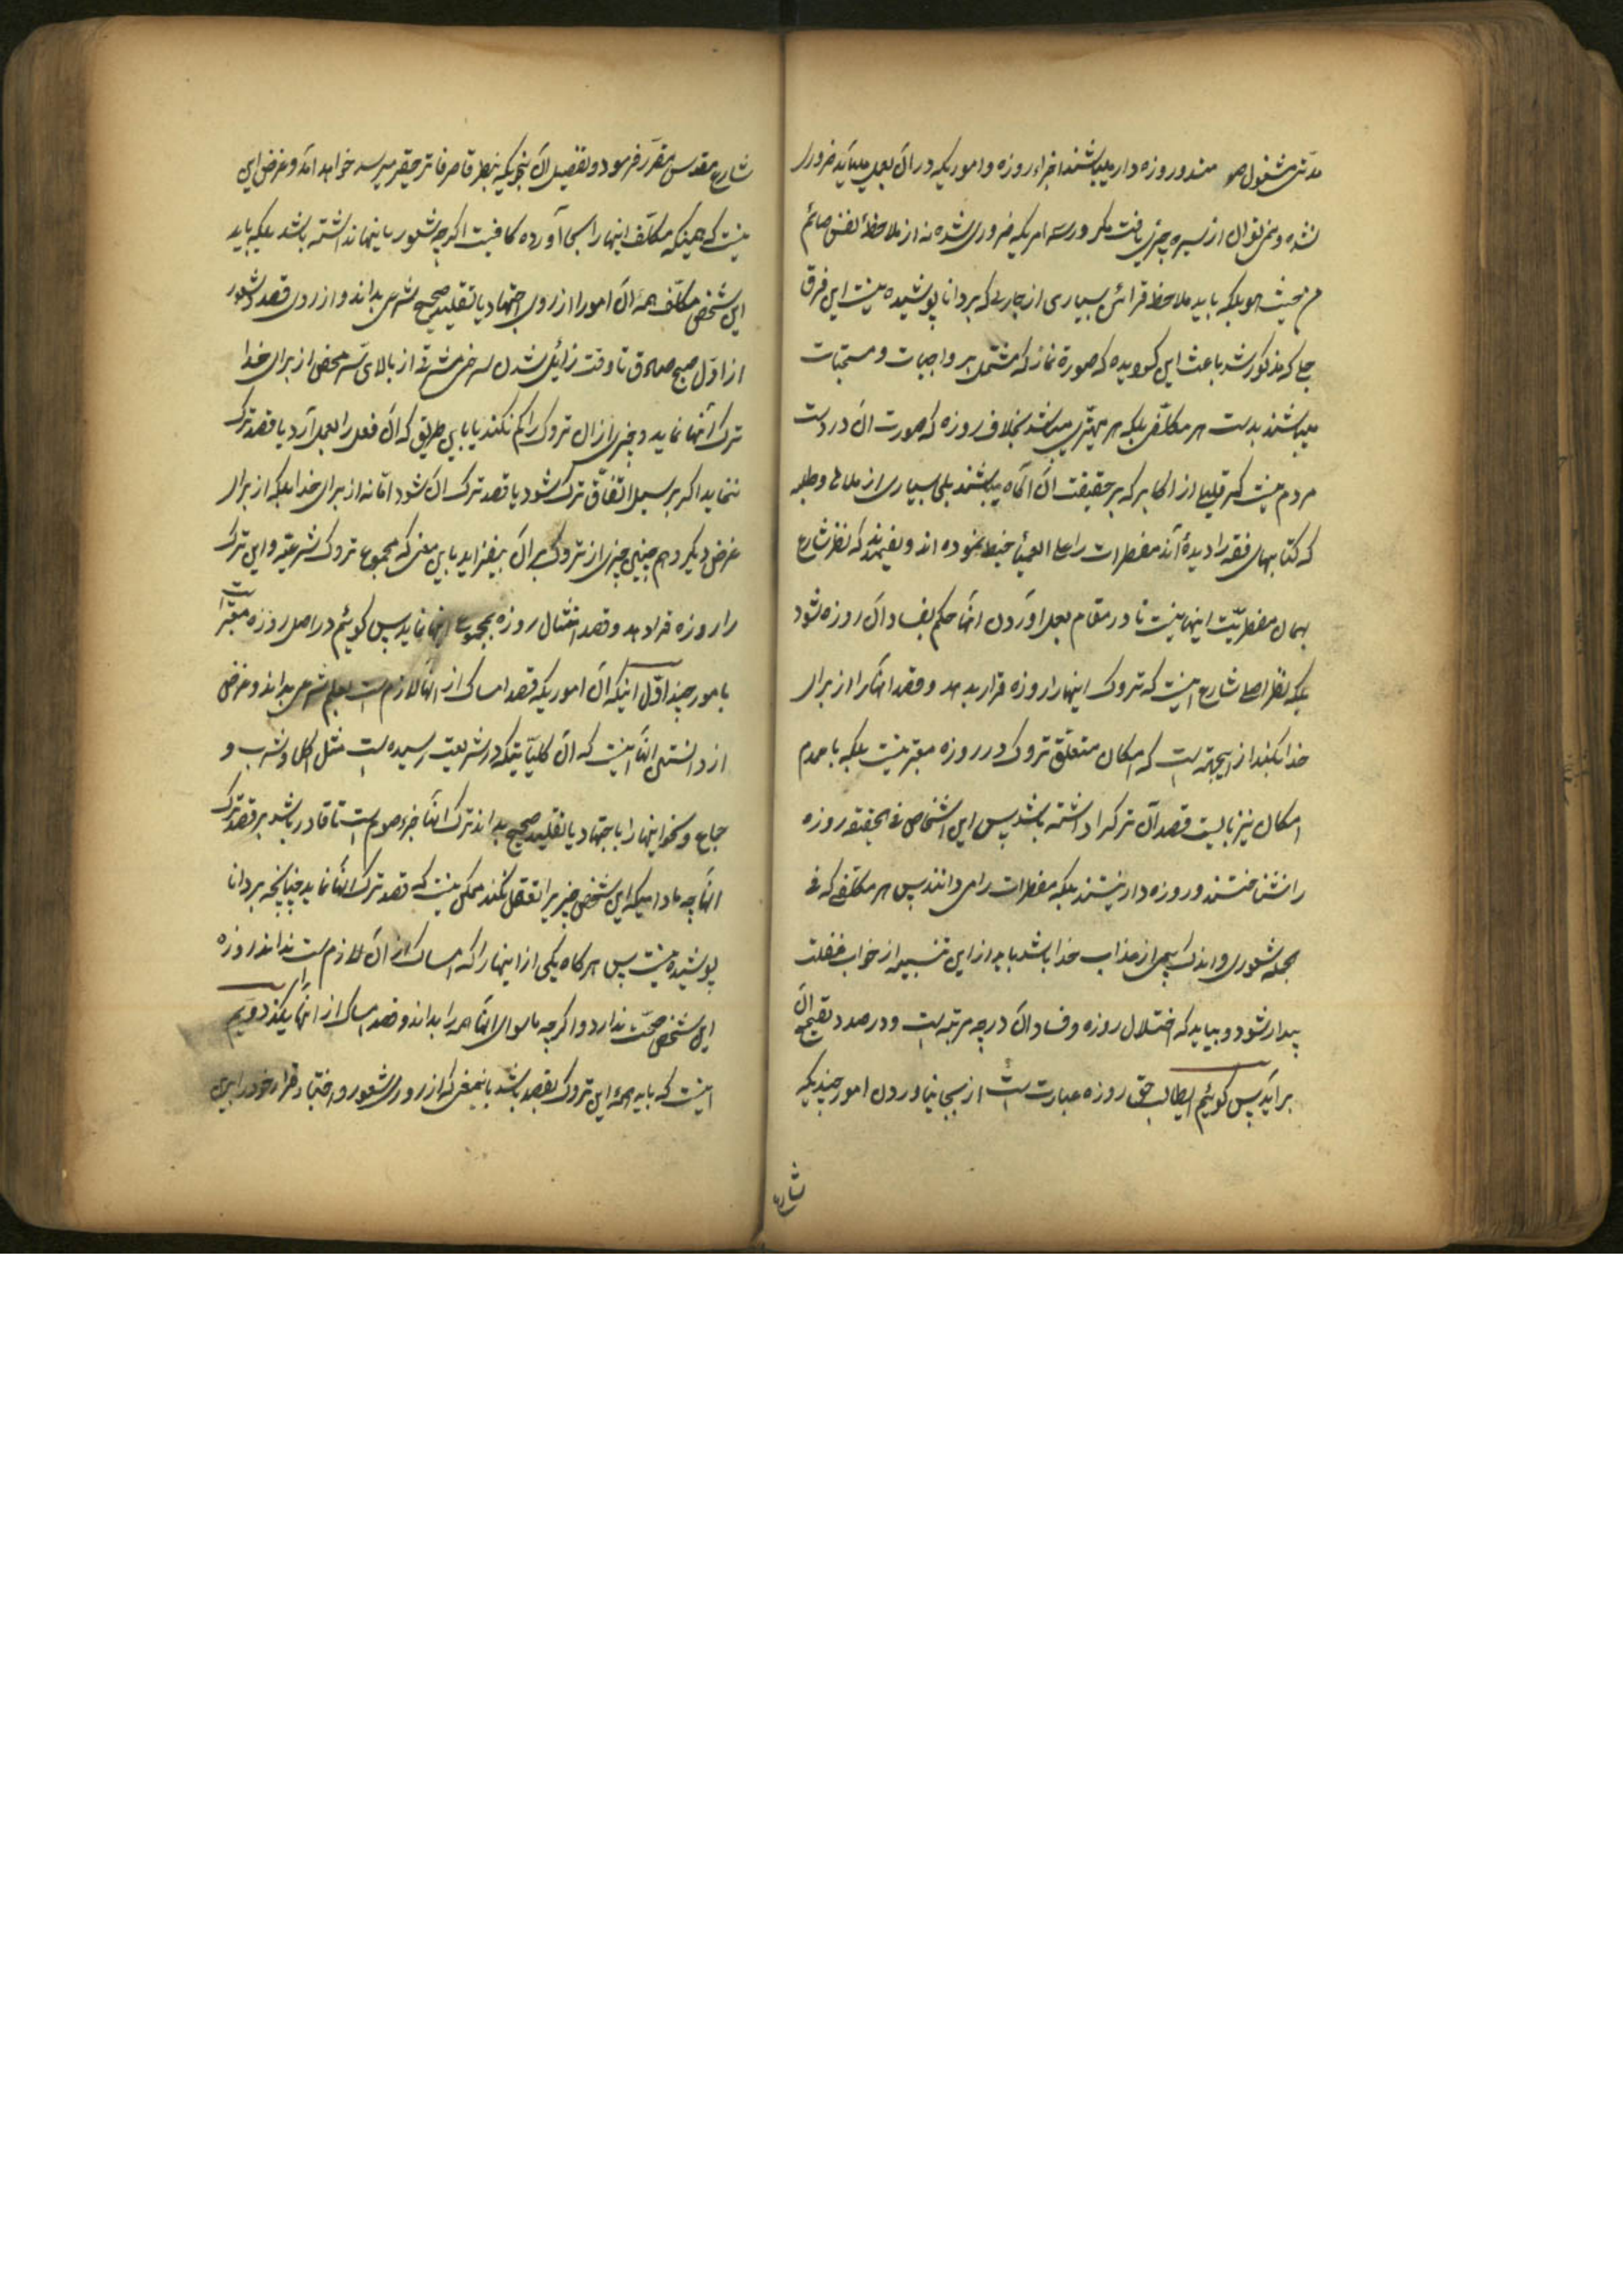 مدتی مشغول صو مند و روزه دار میباشند اجزاء روزه و اموریکه در آن بعمل میآید ضروری
نشده و نمی توان از سیره چیزی یافت مگر در سه امریکه ضروری شده نه از ملاحظهٔ نفس صائم
من حیث هو بلکه باید ملاحظ قرائن بسیاری از خارج که بر دانا پوشیده نیست این فرق
جلی که مذکور شد باعث این گردیده که صورة نماز که مشتمل بر واجبات و مستحبات
میباشند بدست هر مکلفی بلکه هر ممیزی میباشد بخلاف روزه که صورت آن در دست
مردم نیست مگر قلیلی از اکابر که بر حقیقت آن آگاه میباشند بلی بسیاری از ملاها و طلبه
که کتابهای فقه را دیده‌اند مفطرات را علی العمیا ضبط نموده اند و نفهمیدند که نظر شارع
بهمان مفطریّت اینها نیست تا در مقام بعمل آوردن آنها حکم بفساد آن روزه شود
بلکه نظر اصلی شارع اینست که تروک اینها را روزه قرار بدهد و قصد آنها را از برای
خدا بکند از اینجهة است که امکان متعلّق تروک در روزه معتبر نیست بلکه با عدم
امکان نیز بایست قصد آن ترک را داشته باشد پس این اشخاص فی الحقیقه روزه
را نشناختند و روزه دار نیستند بلکه مفطرات را می دانند پس هر مکلفی که فی
الجمله شعوری و اندک بیمی از عذاب خدا باشد باید از این تنبیه از خواب غفلت
بیدار شود و بیابد که اختلال روزه و فساد آن در چه مرتبه است و در صدد تصحیح آن
برآید پس گوئیم ایطالب حق روزه عبارت است از بجا نیاوردن امور چندیکه
شارع
شارع مقدس مقرّر فرموده و تفصیل آن بنحویکه بنظر قاصر فاتر حقیر میرسد خواهد آمد و غرض این
نیست که همینکه مکلّف اینها را بجا آورده کافیست اگرچه شعور باینها نداشته باشد بلکه باید
این شخص مکلّف همهٔ آن امور را از روی اجتهاد یا تقلید صحیح شرعی بداند و از روی قصد و شعور
از اوّل صبح صادق تا وقت زائل شدن سرخی مشرقی از بالای سر محض از برای خدا
ترک آنها نماید و چیزی از آن تروک را کم نکند یا باین طریق که آن فعل را بعمل آرد یا قصد ترک
ننماید اگر بر سبیل اتفاق ترک شود یا قصد ترک آن شود امّا نه از برای خدا بلکه از برای
غرض دیگر و هم چنین چیزی از تروک بر آن نیفزاید باین معنی که مجموع تروک شرعیّه و این ترک
را روزه قرار دهد و قصد امتثال روزه بمجموع اینها نماید پس گوئیم در اصل روزه معتبر است
بامور چند اوّل اینکه آن اموریکه قصد امساک از آنها لازم است بعلم شرعی بداند و غرض
از دانستن آنها اینست که آن کلیّاتیکه در شریعت رسیده است مثل اکل و شرب و
جماع و نحو اینها را باجتهاد یا تقلید صحیح بداند ترک آنها جزء صوم است تا قادر باشد بر قصد ترک
آنها چه مادامیکه این شخص چیزی را تعقل نکند ممکن نیست که قصد ترک آنها نماید چنانچه بر دانا
پوشیده نیست پس هرگاه یکی از اینها را که امساک از آن لازم است نداند روزه
این شخص صحّت ندارد و اگرچه ماسوای آنها همه را بداند و قصد امساک از آنها بکند دویّم
اینست که باید همهٔ این تروک بقصد باشد باینمعنی که از روی شعور و اختیار قرار خود را بر این